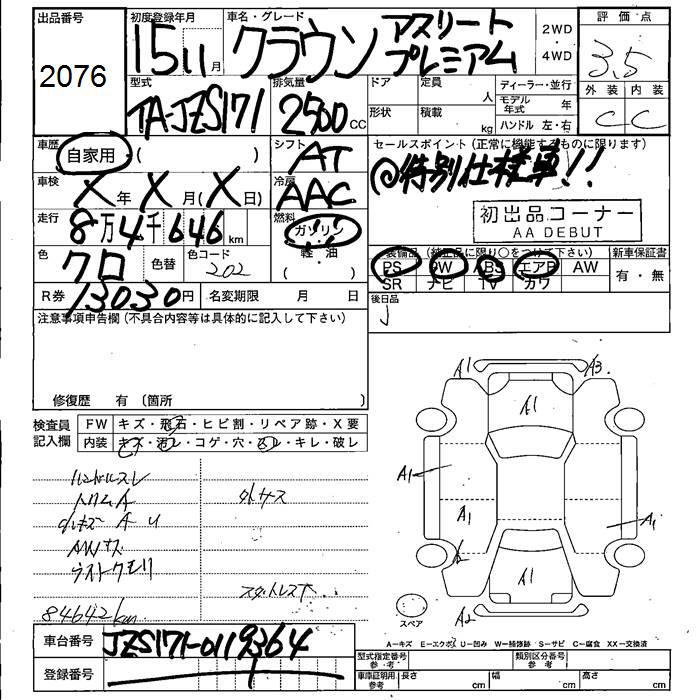 出品番号
2076
初度登録年月
15 11 月
車名・グレード
クラウン アスリート
プレミアム
2WD
・
4WD
評価点
3.5
外装 内装
C C
型式
TA-JZS171
排気量
2500 CC
ドア 定員 人
形状 積載 kg
ディーラー・並行
モデル年式 年
ハンドル 左・右
車歴
自家用 ( )
シフト
AT
セールスポイント(正常に機能するものに限ります)
◎特別仕様車!!
車検
X 年 X 月(X 日)
冷房
AAC
初出品コーナー
AA DEBUT
走行
8万4千646 km
燃料
ガソリン
軽・油
色
クロ
色替
色コード
202
装備品(純正品に限り○をつけて下さい)
PS PW ABS エアB AW
SR ナビ TV カワ
新車保証書
有・無
R券 13030円 名変期限 月 日
後日品
注意事項申告欄(不具合内容等は具体的に記入して下さい)
修復歴 有 〔箇所
検査員
記入欄
FW キズ・飛石・ヒビ割・リペア跡・X要
内装 キズ・汚レ・コゲ・穴・スレ・キレ・破レ
ハンドルスレ
トリムA
外サース
AWキズ
スタットレス
84642km
A1 A3
A1
A1
A1 A1
A1
A2
スペア
A-キズ E-エクボ U-凹み W-補修跡 S-サビ C-腐食 XX-交換済
車台番号
JZS171-0119364
登録番号
型式指定番号
参考
類別区分番号
参考
車庫証明用
参考
長さ cm 幅 cm 高さ cm